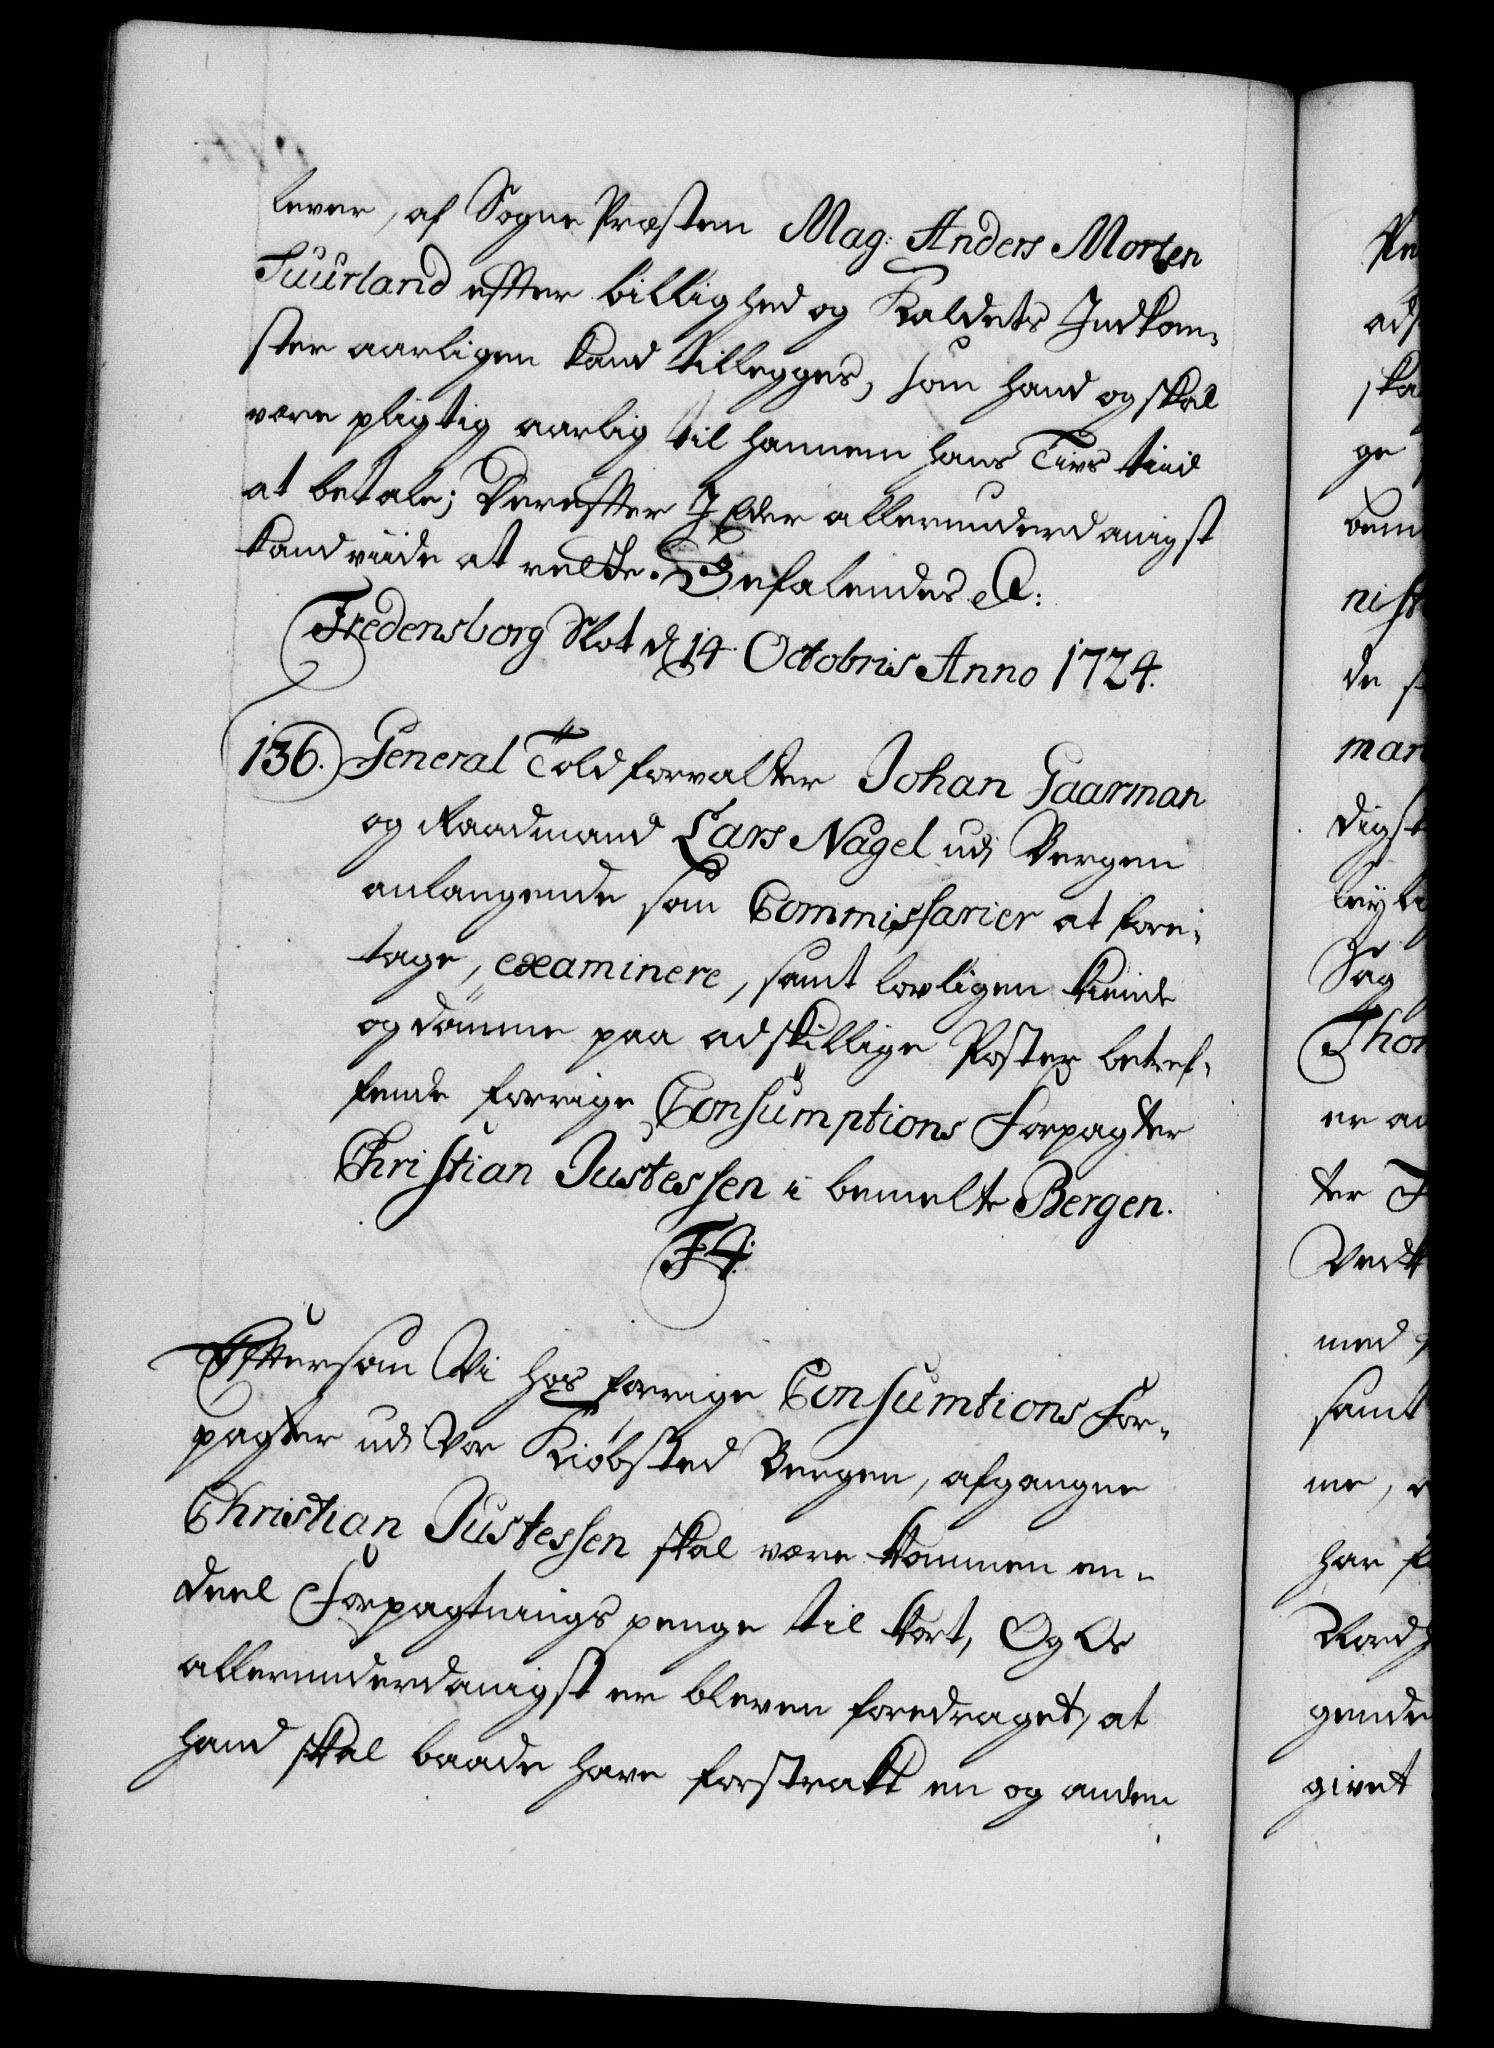 lever, af Sogne Præsten Mag: Anders Morten
Suurland effter billighed og Kaldets Indkom-
ster aarligen kand tillegges, som hand og skal
være pligtig aarlig til hannem hans Livs tiid
at betale; Dereffter I Eder allerunderdanigst
kand viide at rette. Befalendes &:
Fredensborg Slot d 14 Octobris Anno 1724.
136. General Toldforvalter Johan Gaarman
og Raadmand Lars Nagel udj Bergen
anlangende som Commissarier at fore-
tage, examinere, samt lovligen kiende
og dömme paa adskillige Poster betref-
fende forrige Consumptions Forpagter
Christian Justessen i bemelte Bergen.
F4:
Efftersom Vi hos forrige Consumtions For-
pagter udj Vor Kiøbsted Bergen, afgangne
Christian Justessen skal være kommen en-
deel Forpagtnings penge til kort, Og Os
allerunderdanigst er bleven foredraget, at
hand skal baade have forstrakt en og anden
ads
ska
ge
bem
de
man
digst
Sag
Thor
er an
ter
Vedt
med
samt
me,
har
gende
givet